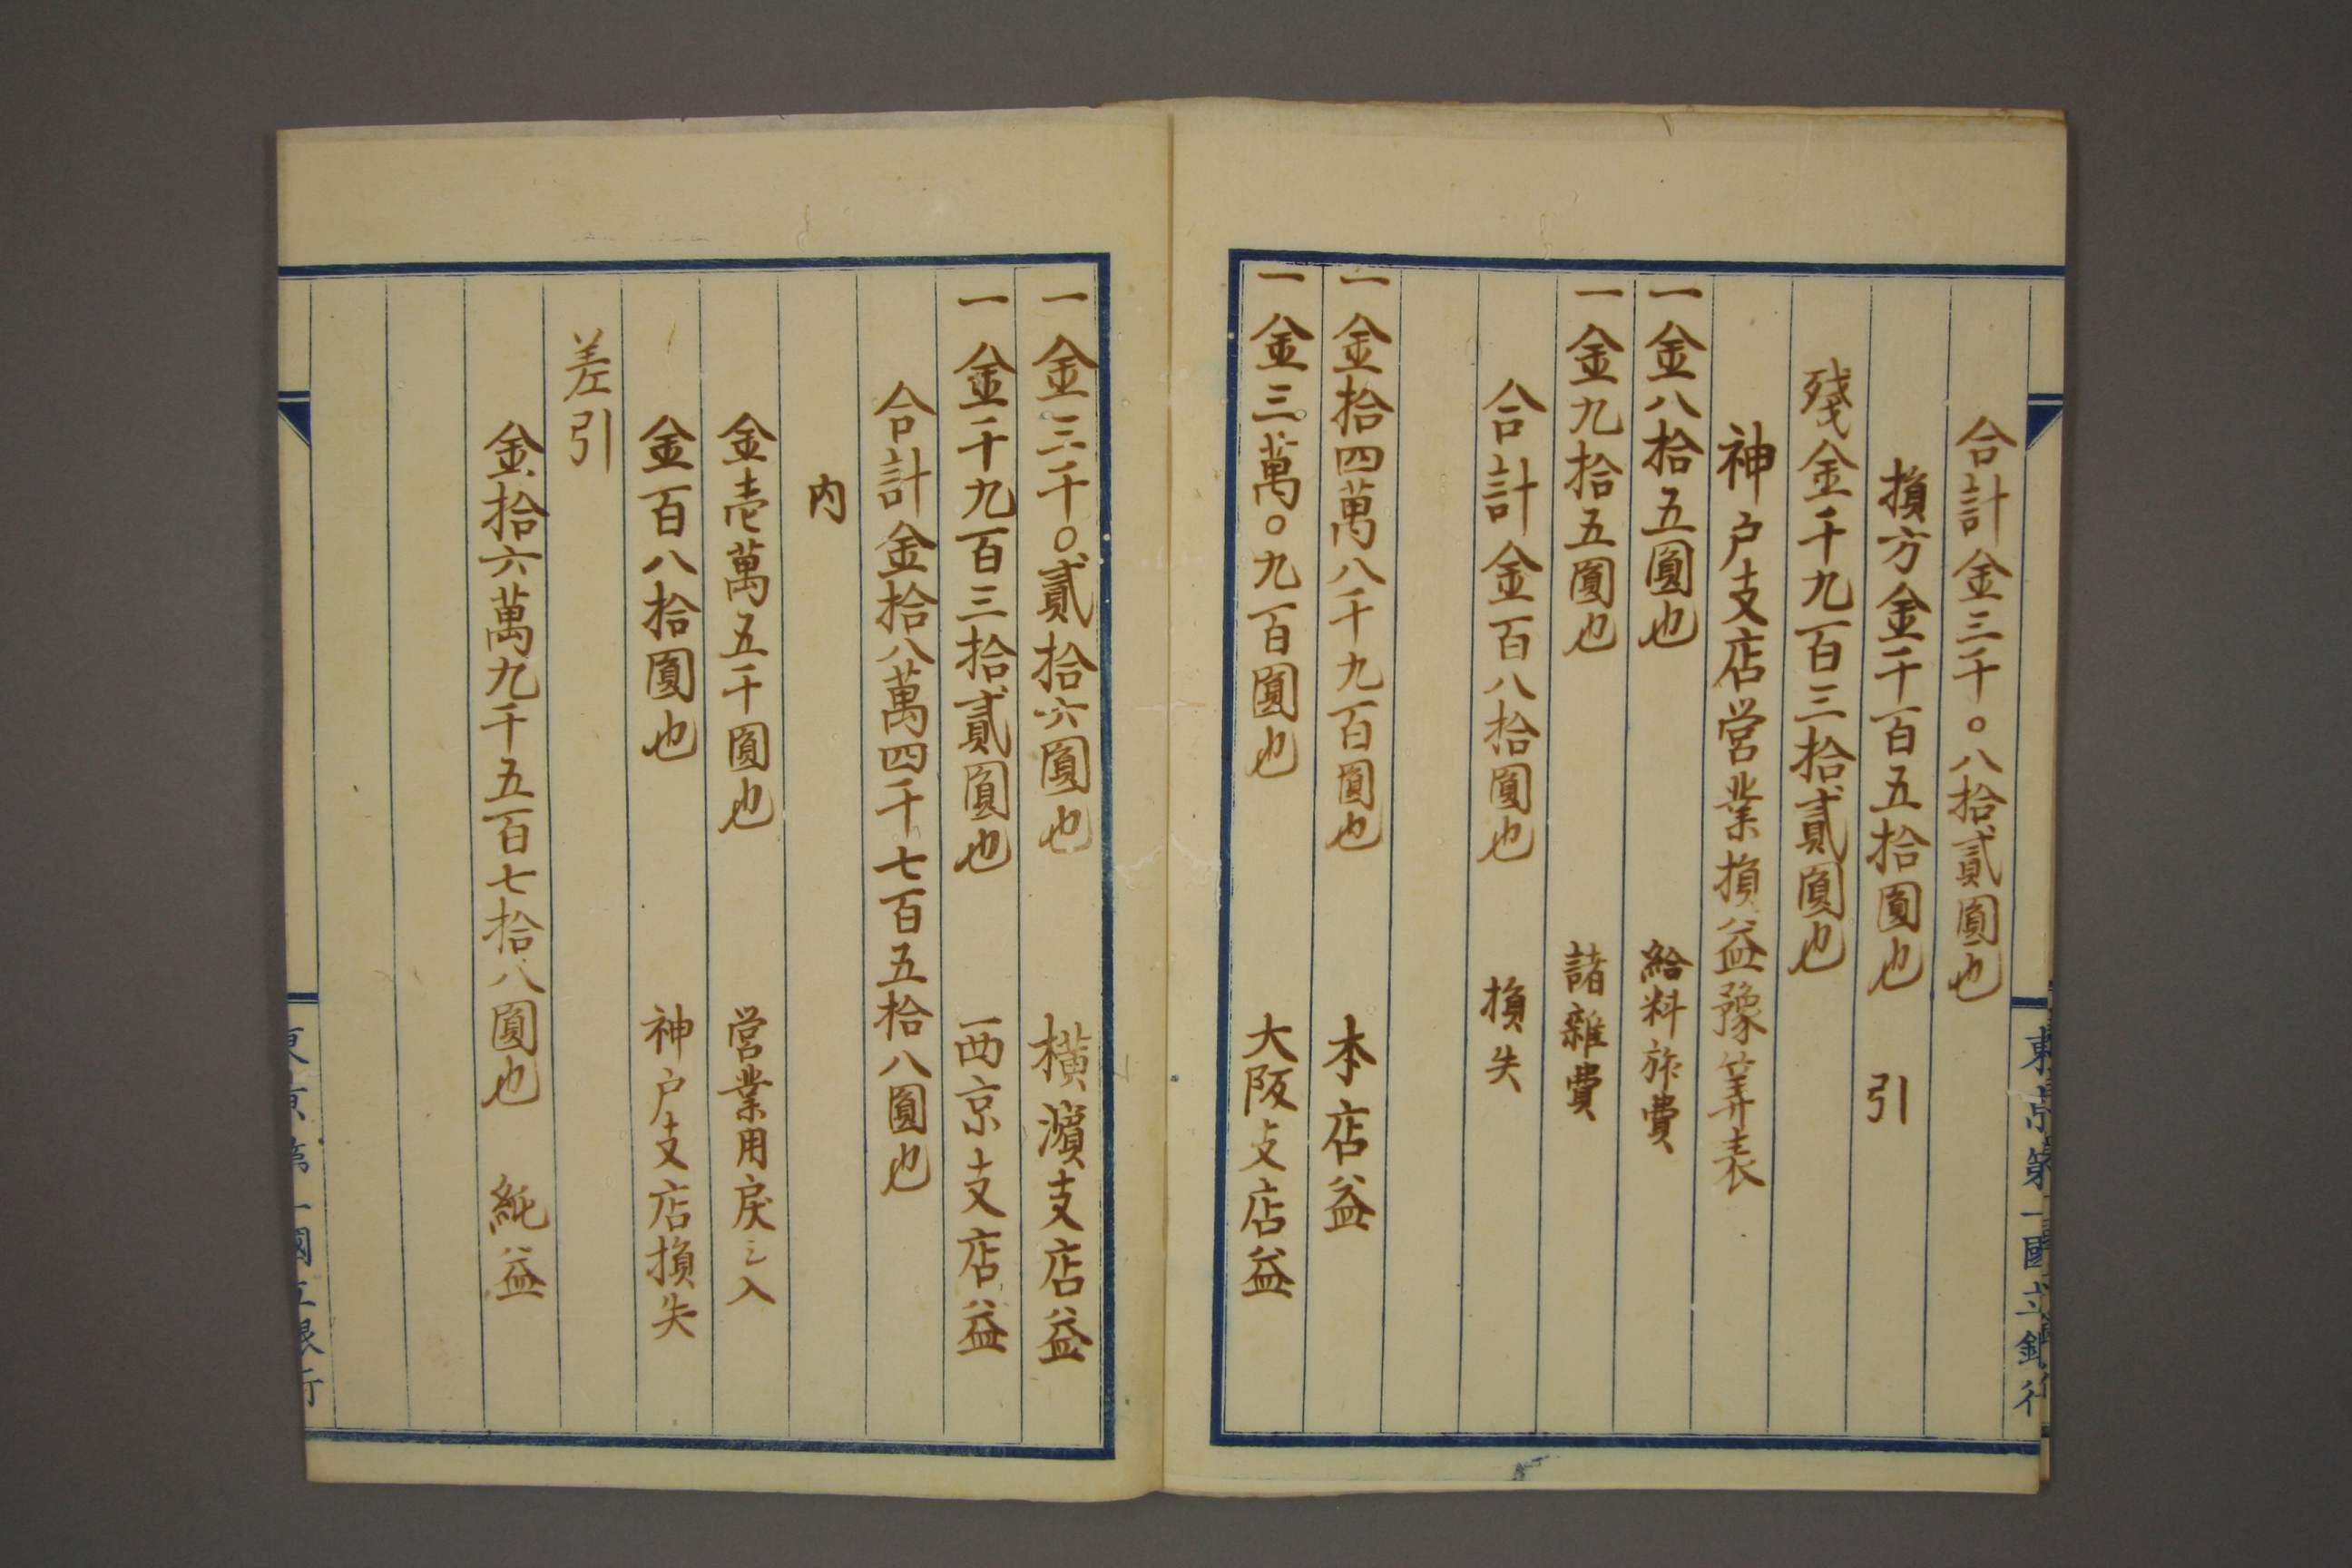 東京第一國立銀行
合計金三千〇八拾貳圓也
損方金千百五拾圓也 引
殘金千九百三拾貳圓也
神戸支店営業損益豫算表
一金八拾五圓也 給料旅費
一金九拾五圓也 諸雜費
合計金百八拾圓也 損失
一金拾四萬八千九百圓也 本店益
一金三萬〇九百圓也 大阪支店益
一金三千〇貳拾六圓也 横濵支店益
一金千九百三拾貳圓也 西京支店益
合計金拾八萬四千七百五拾八圓也
内
金壱萬五千圓也 営業用戻シ入
金百八拾圓也 神戸支店損失
差引
金拾六萬九千五百七拾八圓也 純益
東京第一國立銀行